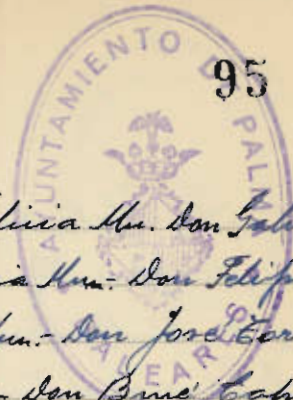 95
AYUNTAMIENTO DE PALMA
BALEARES
licia Mu. Don Gab
ia Mun.- Don Felip
un.- Don José Tor
- Don Bmé Cap